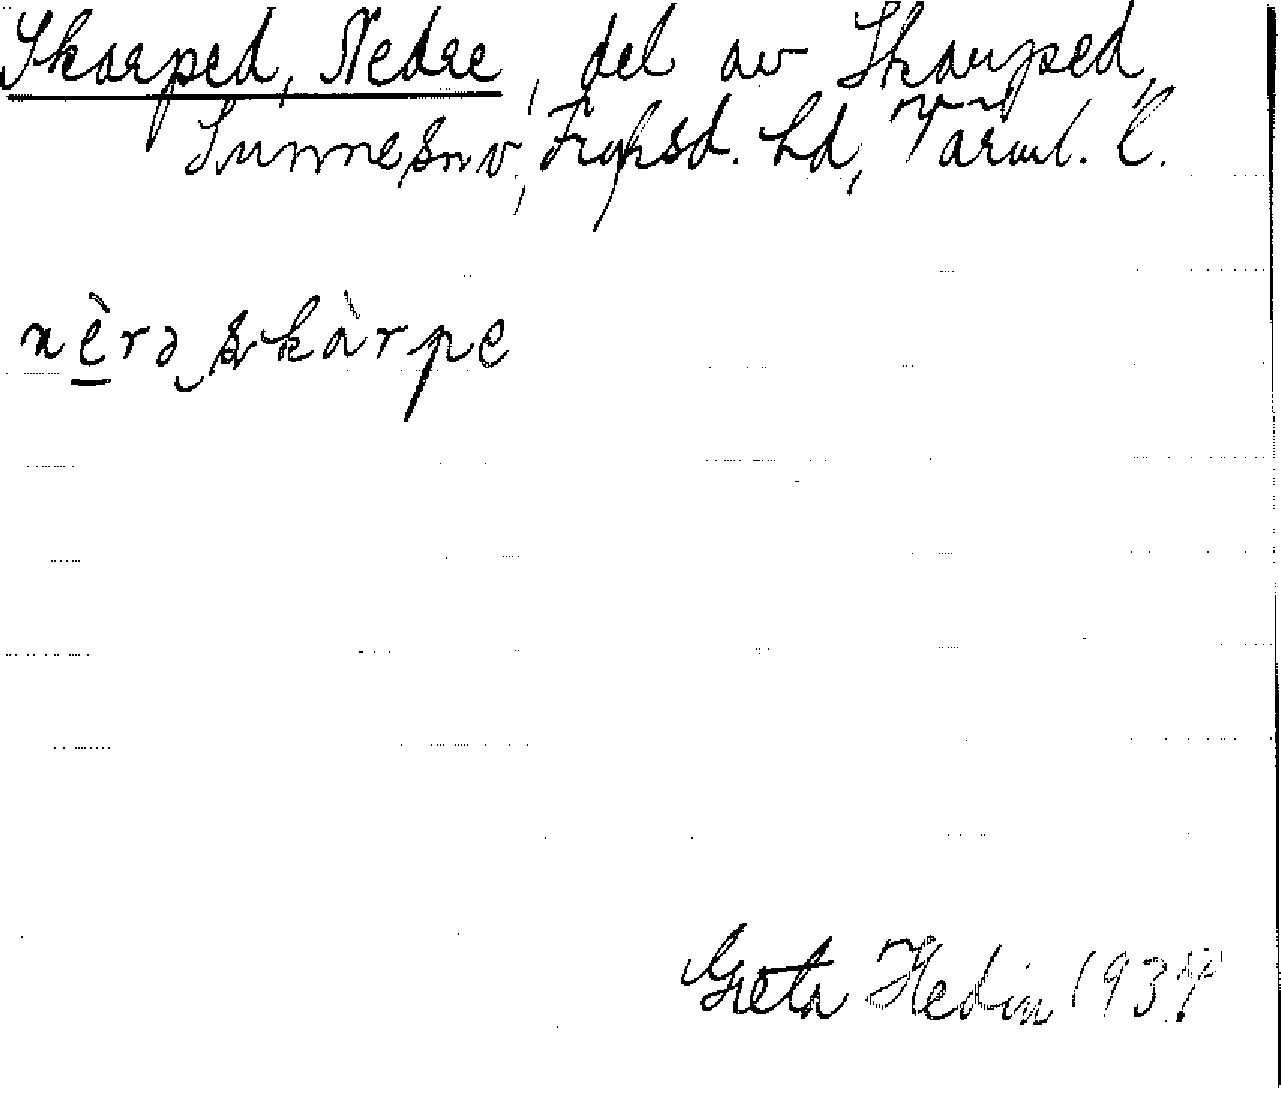 Skarped, Nedre, del av Skarped,
Sunne sn, Fryksd. hd, Värml. l.
nèrə skàrpe
Greta Hedin